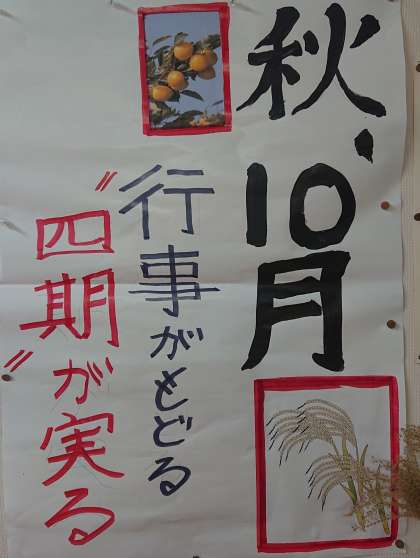 秋、10月
行事がもどる
〝四期が実る〟